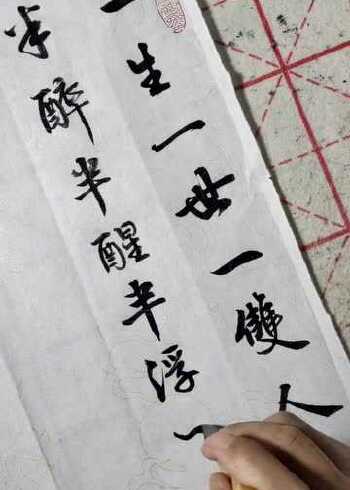 一生一世一雙人
半醉半醒半浮